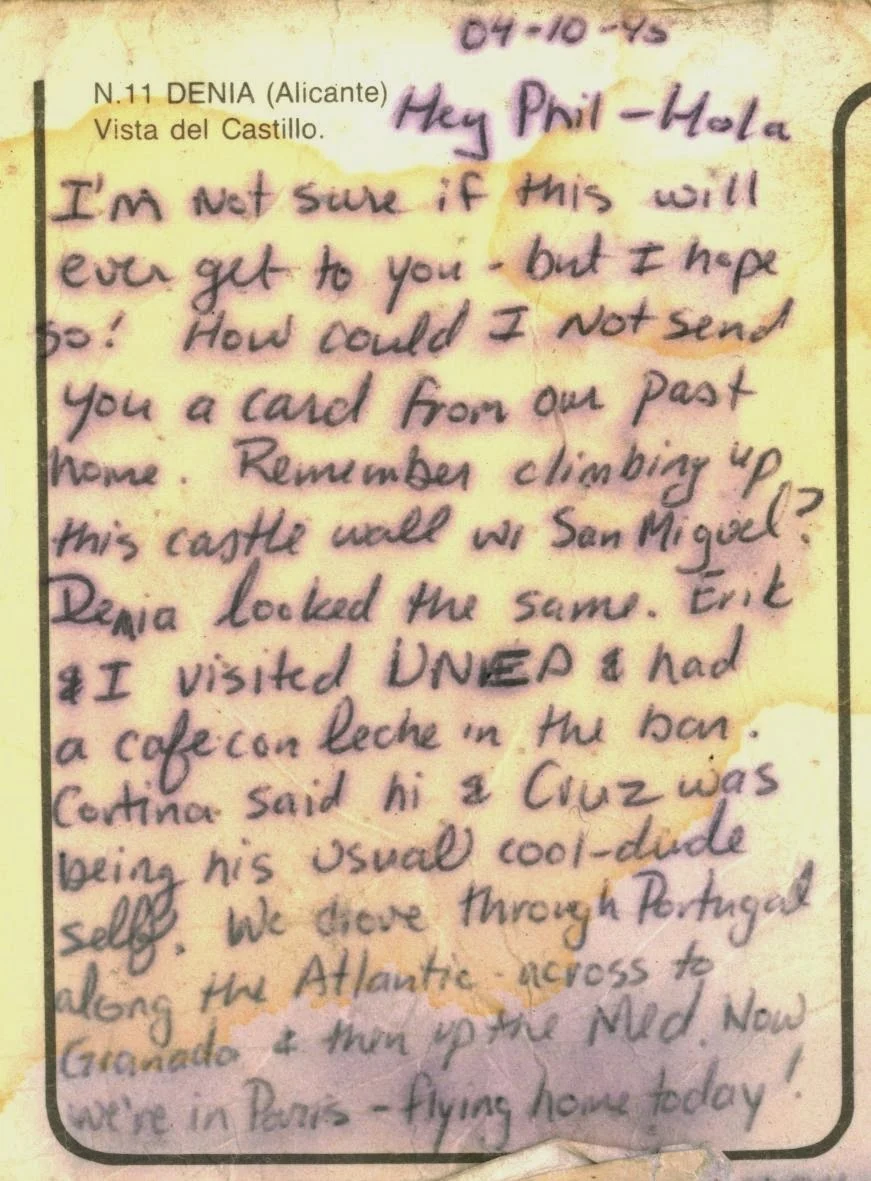 04-10-95
N.11 DENIA (Alicante)
Vista del Castillo.
Hey Phil - Hola
I'm Not sure if this will
ever get to you - but I hope
so! How could I Not send
you a card from our past
home. Remember climbing up
this castle wall w/ San Miguel?
Denia looked the same. Erik
& I visited UNED & had
a cafe con leche in the bar.
Cortina said hi & Cruz was
being his usual cool-dude
self. We drove through Portugal
along the Atlantic - across to
Granada & then up the Med. Now
we're in Paris - flying home today!